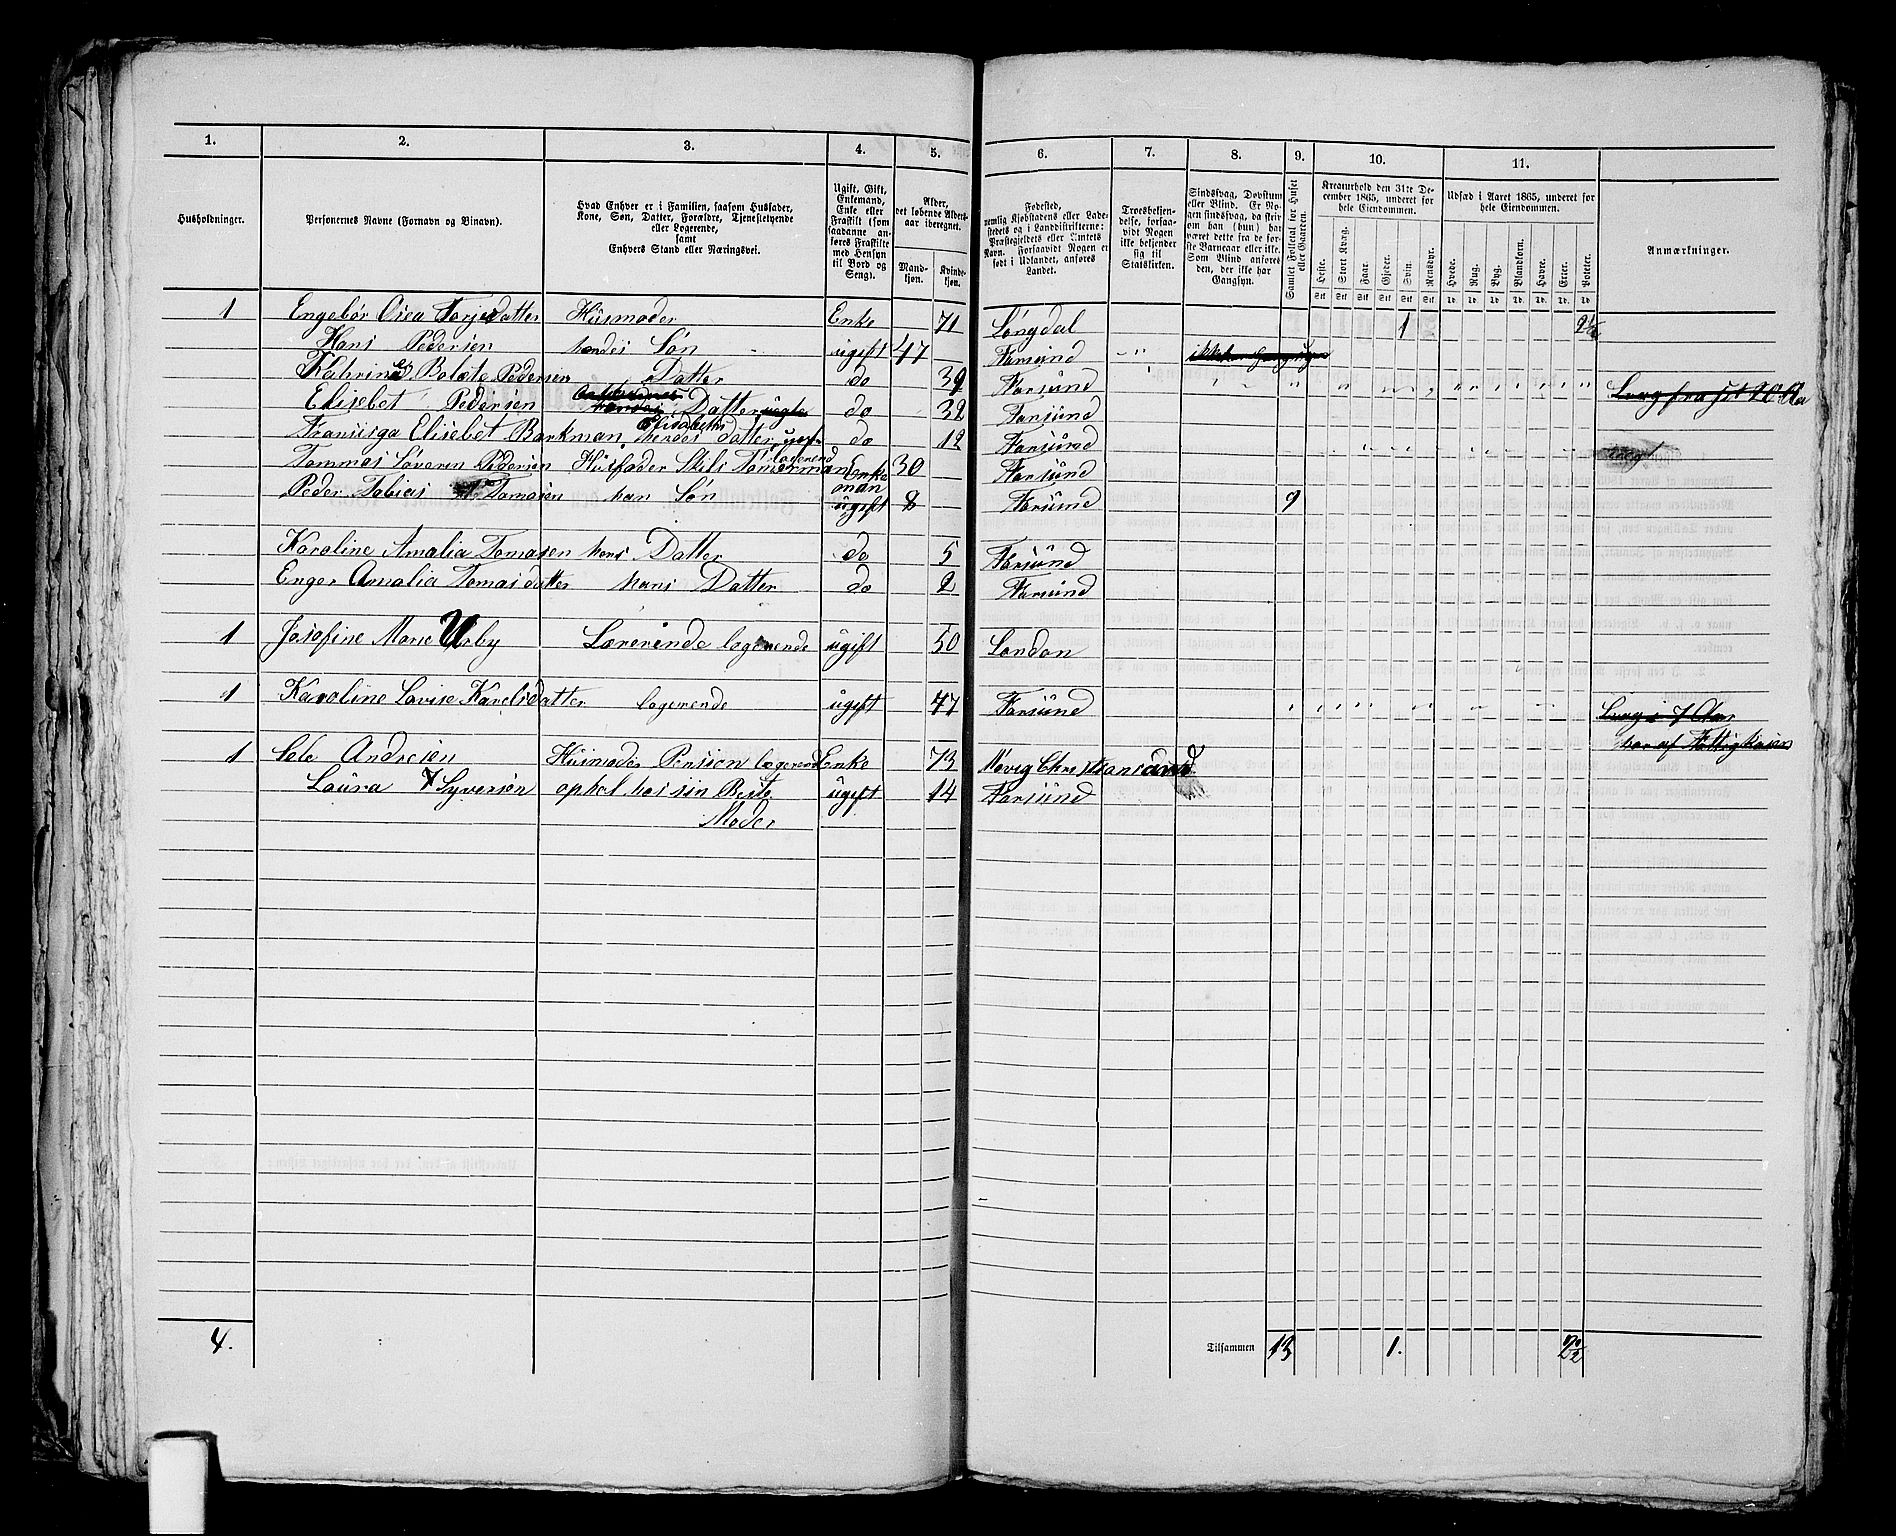 1. 2. 3. 4. 5. 6. 7. 8. 9. 10. 11.
Husholdninger.
Personernes Navne (Fornavn og Binavn).
Hvad Enhver er i Familien, saasom Husfader, Kone, Søn, Datter, Forældre, Tjenestetyende eller Logerende, samt Enhvers Stand eller Næringsvei.
Ugift, Gift, Enkemand, Enke eller Fraskilt (som saadanne anføres Fraskilte med Hensyn til Bord og Seng).
Alder, det løbende Aldersaar iberegnet.
Mandkjøn. Kvindekjøn.
Fødested, nemlig Kjøbstadens eller Ladestedets og i Landdistrikterne: Præstegjeldets eller Amtets Navn. Forsaavidt Nogen er født i Udlandet, anføres Landet.
Troesbekjendelse, forsaavidt Nogen ikke bekjender sig til Statskirken.
Sindssvag, Døvstum eller Blind. Er Nogen sindssvag, da skriv om han (hun) har været dette fra de første Barneaar eller ikke. Som Blind anføres den, der ikke har Gangsyn.
Samlet Folketal for Huset eller Gaarden.
Kreaturhold den 31te December 1865, underet for hele Eiendommen.
Heste. Stort Kvæg. Faar. Gjeder. Svin. Rensdyr.
Udsæd i Aaret 1865, underet for hele Eiendommen.
Hvede. Rug. Byg. Blandkorn. Havre. Erter. Poteter.
Anmærkninger.
1 Engebør Osea Torjesdatter Husmoder Enke 71 Løngdal 1 2½
Hans Pedersen hendes Søn ugift 47 Farsund
Katrine Bolete Pedersen Datter do 39 Farsund
Elisebet Pedersen Datter do 32 Farsund
Fransisga Elisebet Barkman Elisabeths hendes datter do 12 Farsund
Tommes Søveren Pedersen Husfader Skibs Tømerman logerend Enkeman 30 Farsund
Peder Tobias Tomasen han Søn ugift 8 Farsund 9
Karoline Amalia Tomasen hans Datter do 5 Farsund
Enger Amalia Tomasdatter hans Datter do 2 Farsund
1 Josefine Marie Urby Lærerinde logerende ugift 50 London
1 Karoline Lovise Karelsdatter logerende ugift 47 Farsund
har af Fattigkasen
1 Sele Andresen Husmoder Pensien logerend Enke 73 Møvig Christiansand
Laura Syversen ophol hos sin Beste ugift 14 Farsund
Moder
4. Tilsammen 13 1. 2½